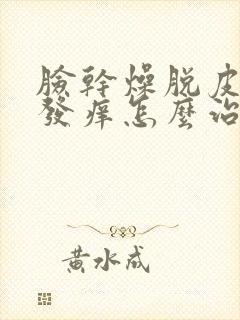 臉幹燥脱皮
發癢怎麼治
黃水成